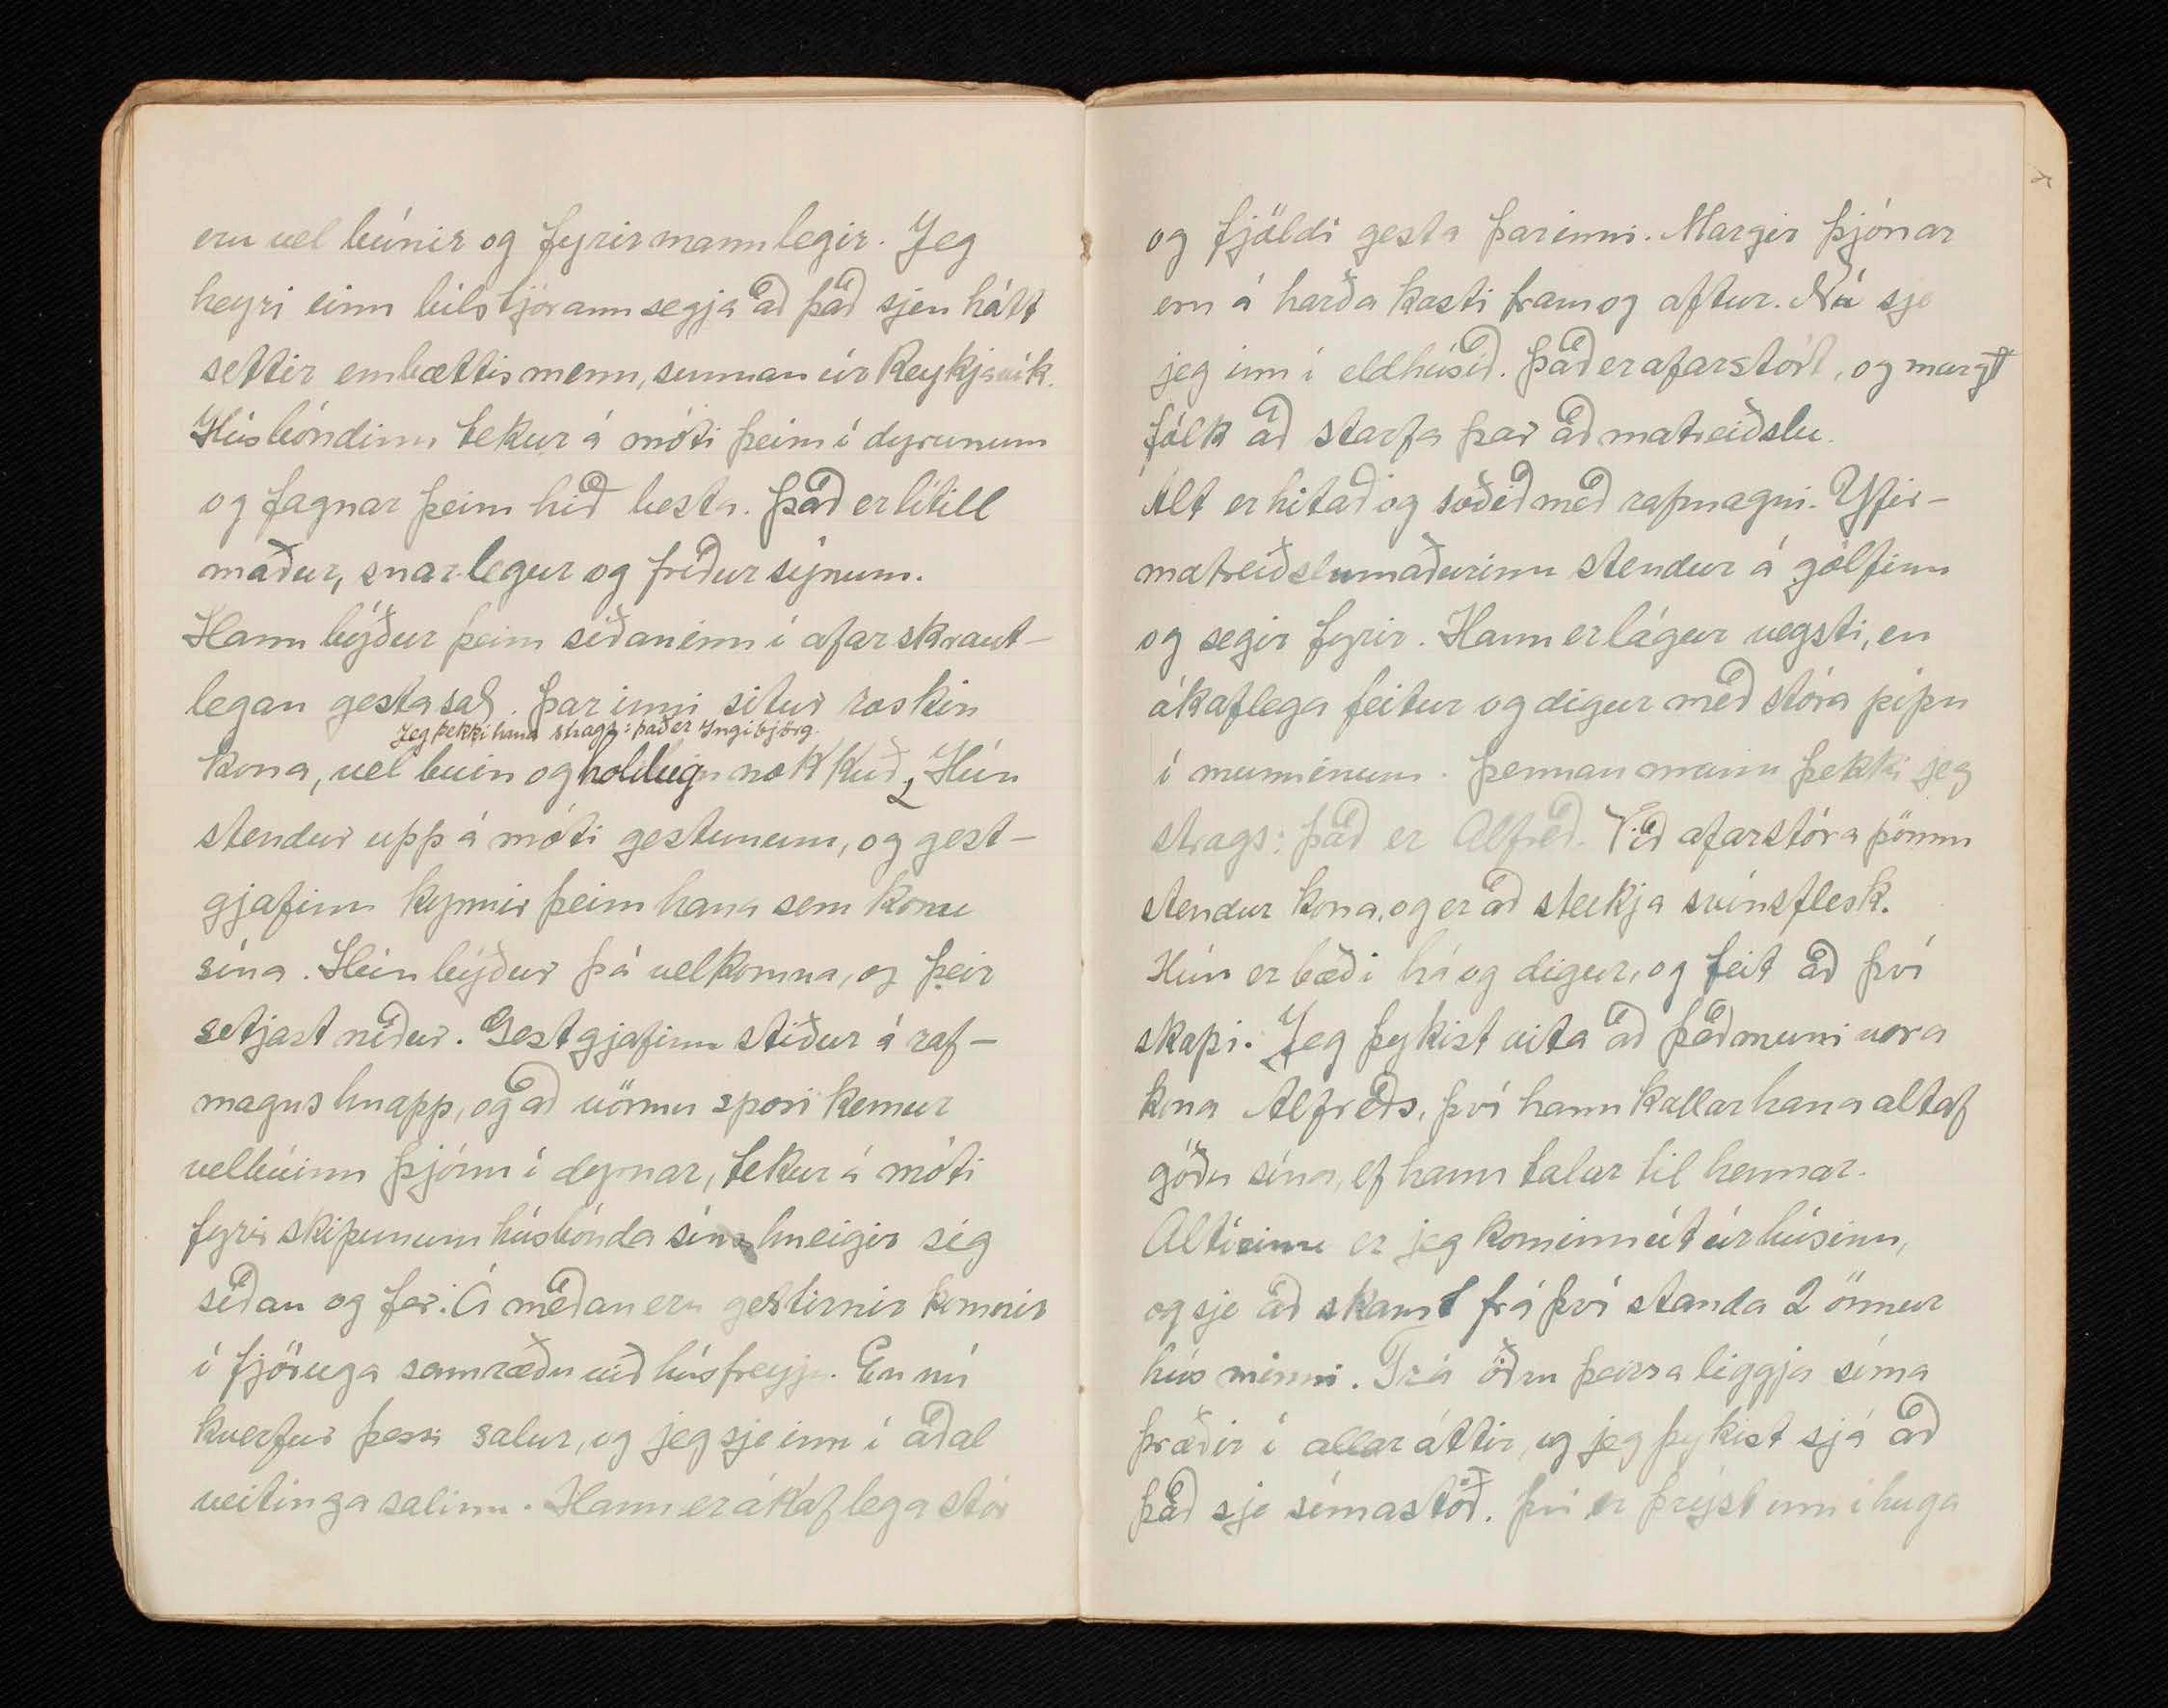 eru vel búnir og fyrirmannlegir. Jeg
heyri einn bílstjórann segja að það sjeu hátt
settir embættismenn, sunnan úr Reykjavík.
Húsbóndinn tekur á móti þeim í dyrunum
og fagnar þeim hið besta. Það er lítill
maður, snarlegur og fríður sýnum.
Hann býður þeim síðan inn í afar skraut-
legan gestasal. Þar inni situr roskin
Jeg þekki hana strags: það er Ingibjörg.
kona, vel buin og holdug nokkuð. Hún
stendur upp á móti gestunum, og gest-
gjafinn kynnir þeim hana sem konu
sína. Hún býður þá velkomna, og þeir
setjast niður. Gestgjafinn stiður á raf-
magnshnapp, og að vörmu spori kemur
velbúinn þjónn í dyrnar, tekur á móti
fyrir skipunum húsbónda síns hneigir sig
síðan og fer. Á meðan eru gestirnir komnir
í fjöruga samræðu við húsfreyju. En nú
hverfur þessi salur, og jeg sje inn í aðal
veitingasalinn. Hann er ákaflega stór
og fjöldi gesta þarinni. Margir þjónar
eru á harða kasti fram og aftur. Nú sje
jeg inn í eldhúsið. Það er afarstórt, og margt
fólk að starfa þar að matreiðslu.
Alt er hitað og soðið með rafmagni. Yfir-
matreiðslumaðurinn stendur á gólfinu
og segir fyrir. Hann er lágur vegsti, en
ákaflega feitur og digur með stóra pípu
í munninum. Þennan mann þekki jeg
strags: það er Alfreð. Við afarstóra pönnu
stendur kona, og er að steikja svínsflesk.
Hún er bæði há og digur, og feit að því
skapi. Jeg þykist vita að það muni vera
kona Alfreðs, því hann kallar hana altaf
góðu sína, ef hann talar til hennar.
Altíeinu er jeg kominn út úr húsinu,
og sje að skamt frá því standa 2 önnur
hús minni. Frá öðru þeirra liggja síma
þræðir í allar áttir, og jeg þykist sjá að
það sje símastöð. Því er þrýst inn í huga